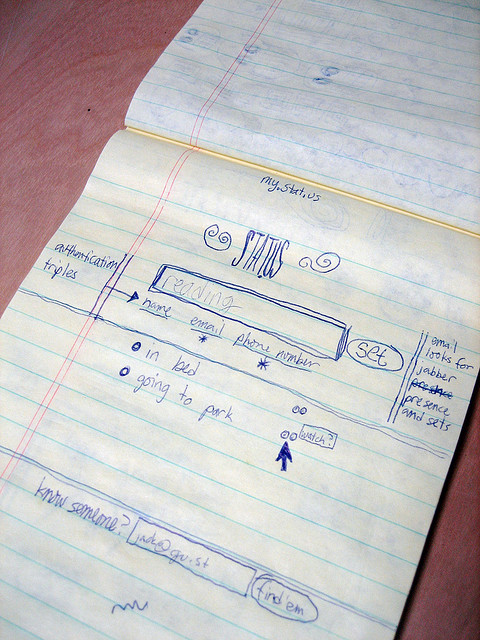 my.stat.us
STATUS
authentication
triples
reading
set
name email phone number
* *
email
looks for
jabber
presence
presence
and sets
in bed
going to park
watch?
know someone?
jack@gu.st
find 'em